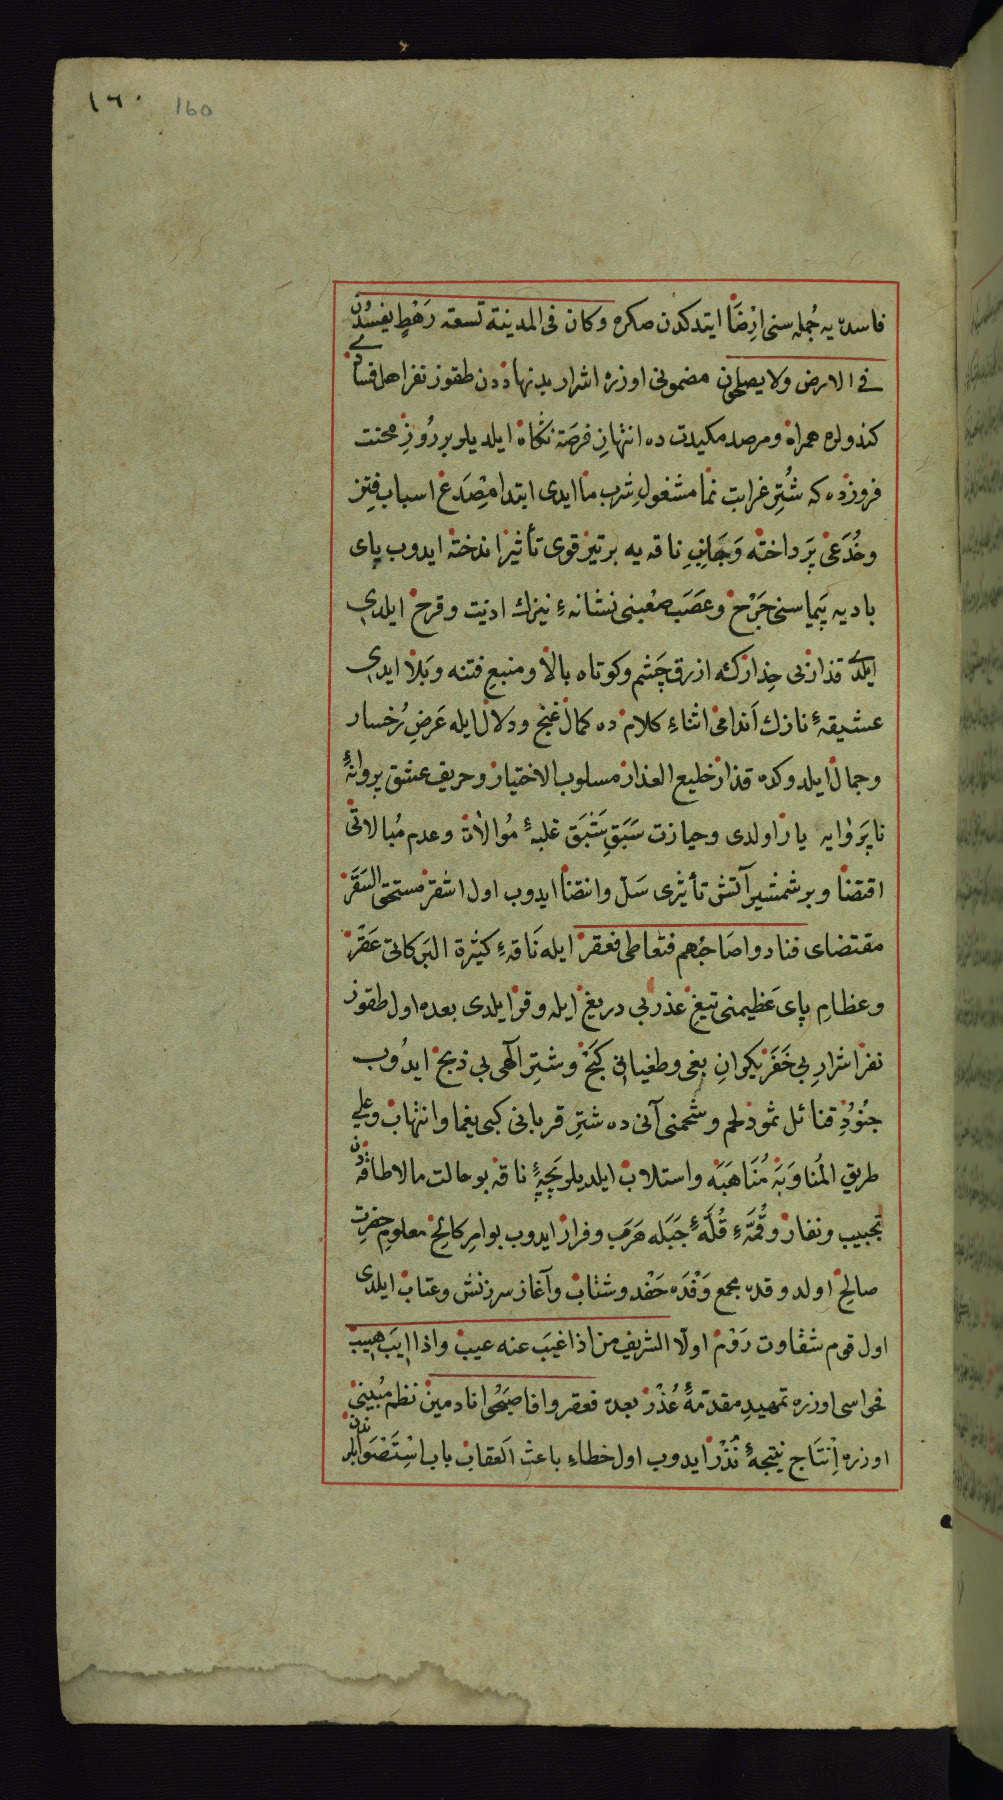 ١٦٠ 160
فاسده يه جُمله سنى اِرْضَا ايتدكدن صكره وكان فى المدينة تسعة رَهْطٍ يفسدون
فے الارض ولا يصلحون مضمونى اوزره اشرار بدنهاددن طقوز نفر اهل فسادے
كندولره همراه ومرصد مكيدت ده انتهانِ فرصته نگاه ايلديلر بررُوزِ محنت
فروزده كه شُترِ غرابت نما مشغولِ شرب ما ايدى ابتدا مِصْدَع اسباب فِتَن
وخُدَعى پَرداخته وَجَانبِ ناقه يه برتيز قوى تأثير انداخته ايدوب پاى
باديه پَيماسنى جَرْح وعَصَب صعبنى نشانهٔ نيزك اذيت وقرح ايلدى
ايلدے قذار بى حِذار كه ازرق چَشم وكوتاه بالا ومنبع فتنه وبَلا ايدى
عشيقهٔ نازك اَندامى اثناء كلام ده كمال غنج ودلال ايله عَرضِ رُخسار
وجمال ايلدوكده قذار خليع العذار مسلوب الاختيار وحريف عشق پروانهٔ
ناپَروايه يار اولدى وحيازت سَبَقِ سَبْق غلبهٔ مُوالات وعدم مُبالاتى
اقتضا وبرشمشير آتش تأثيرى سَلّ وانتضا ايدوب اول اشقر مستحق السَقَر
مقتضاى فنادوا صَاحبُهم فتعاطى فعقر ايله نَاقهٔ كثيرة البَركاتى عَقْر
وعظامِ پاى عَظيمنى تيغِ عذربى دريغ ايله وقر ايلدى بعده اول طقوز
نفر اشرارِ بى خَفَر يكرانِ بغى وطغيانى كبَحْ وشترِ الٰهى بى ذبح ايدُوب
جنُودُ قبائل ثمود لحم وشحمنى آنى ده شترِ قربانى كبى يغما وانتهاب وعلى
طريق المُناوَبَه مُنَاهَبَه واستلاب ايلديلر بچهٔ ناقه بو حالت مالا طاقه دن
تجبيب ونفار وقُمّهٔ قُلّهٔ جَبَله هَرَب وفرار ايدوب بو امرِ كائن معلوم حضرت
صالح اولدوقده مجمع وَفْدَه حَفْد وشتاب وآغاز سرزنش وعتاب ايلدى
اول قوم شقاوت رَوْم اولّا الشريف من اذا غيب عنه عيب واذا ايب هيب
فحواسى اوزره تمهيدِ مقدّمهٔ عُذْر بعده فعقروا فاصبَحُوا نادمين نظم مُبينى
اوزره اِنْتَاج نيتجهٔ نُذْر ايدوب اول خطاء باعث العقاب باب اسْتَصْوابلرندن